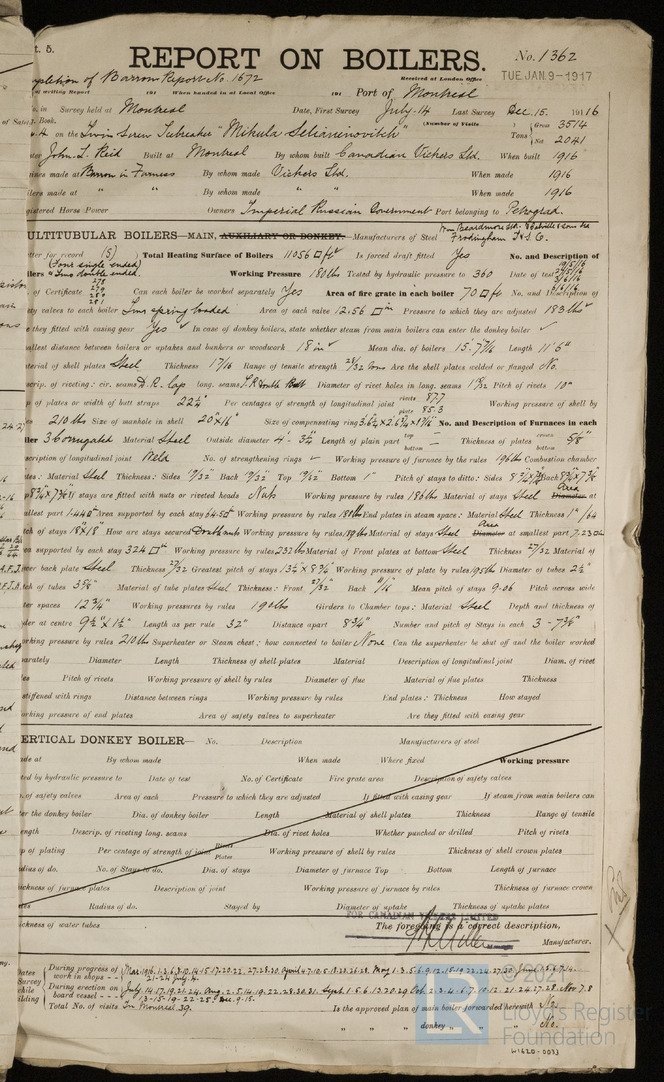 t. 5.
REPORT ON BOILERS.
No. 1362
Completion of Barrow Report No. 1672
Received at London Office
TUE. JAN. 9-1917
of writing Report 191 When handed in at Local Office 191 Port of Montreal
Survey held at Montreal Date, First Survey July. 14 Last Survey Dec. 15. 1916
Book. (Number of Visits
on the Twin Screw Icebreaker "Mikula Selianinovitch" Tons Gross 3514 Net 2041
John T. Reid Built at Montreal By whom built Canadian Vickers Ltd. When built 1916
ines made at Barrow in Furness By whom made Vickers Ltd. When made 1916
lers made at " " By whom made " " When made 1916
gistered Horse Power Owners Imperial Russian Government Port belonging to Petrograd.
MULTITUBULAR BOILERS—MAIN, AUXILIARY OR DONKEY.— Manufacturers of Steel Wm Beardmore Ltd. Frodingham I & S. Co.
etter for record (S) Total Heating Surface of Boilers 11056 □ ft Is forced draft fitted Yes No. and Description of
(Four single ended)
lers & Two double ended. Working Pressure 180 lbs Tested by hydraulic pressure to 360 Date of test
of Certificate 278 279 280 281 Can each boiler be worked separately Yes Area of fire grate in each boiler 70 □ ft No. and Description of
ty valves to each boiler Two spring loaded Area of each valve 12.56 □ in Pressure to which they are adjusted 183 lbs
e they fitted with easing gear Yes In case of donkey boilers, state whether steam from main boilers can enter the donkey boiler
allest distance between boilers or uptakes and bunkers or woodwork 18 in Mean dia. of boilers 15'. 7 7/16 Length 11' 6"
aterial of shell plates Steel Thickness 1 7/16 Range of tensile strength 28/32 tons Are the shell plates welded or flanged No.
scrip. of riveting: cir. seams D.R. lap long. seams T.R. Double Butt Diameter of rivet holes in long. seams Pitch of rivets 10"
p of plates or width of butt straps 22 1/4" Per centages of strength of longitudinal joint rivets 87.7 plate 85.3 Working pressure of shell by
es 210 lbs Size of manhole in shell 20" x 16" Size of compensating ring No. and Description of Furnaces in each
iler 3 Corrugated Material Steel Outside diameter 4'- 3 1/2" Length of plain part top bottom Thickness of plates crown bottom 5/8"
escription of longitudinal joint Weld No. of strengthening rings Working pressure of furnace by the rules 196 lbs Combustion chamber
tes: Material Steel Thickness: Sides 19/32" Back 19/32" Top 19/32" Bottom 1" Pitch of stays to ditto: Sides Back
If stays are fitted with nuts or riveted heads Nuts Working pressure by rules 186 lbs Material of stays Steel Diameter Area at
llest part 1.44 □" Area supported by each stay 64.5 □" Working pressure by rules 180 lbs End plates in steam space: Material Steel Thickness
tch of stays 18" x 18" How are stays secured Double nuts Working pressure by rules 191 lbs Material of stays Steel Diameter Area at smallest part 7.23 □ in
ea supported by each stay 324 □" Working pressure by rules 232 lbs Material of Front plates at bottom Steel Thickness 27/32 Material of
wer back plate Steel Thickness 27/32 Greatest pitch of stays 13 1/2 x 8 3/4 Working pressure of plate by rules 195 lbs Diameter of tubes 2 1/2"
tch of tubes 3 5/8" Material of tube plates Steel Thickness: Front 27/32" Back 11/16 Mean pitch of stays 9.06 Pitch across wide
ter spaces 12 3/4" Working pressures by rules 190 lbs Girders to Chamber tops: Material Steel Depth and thickness of
der at centre 9 1/2" x 1 1/2" Length as per rule 32" Distance apart 8 3/4" Number and pitch of Stays in each 3 - 7 3/8"
orking pressure by rules 210 lbs Superheater or Steam chest; how connected to boiler None Can the superheater be shut off and the boiler worked
parately Diameter Length Thickness of shell plates Material Description of longitudinal joint Diam. of rivet
les Pitch of rivets Working pressure of shell by rules Diameter of flue Material of flue plates Thickness
stiffened with rings Distance between rings Working pressure by rules End plates: Thickness How stayed
orking pressure of end plates Area of safety valves to superheater Are they fitted with easing gear
VERTICAL DONKEY BOILER— No. Description Manufacturers of steel
de at By whom made When made Where fixed Working pressure
ted by hydraulic pressure to Date of test No. of Certificate Fire grate area Description of safety valves
. of safety valves Area of each Pressure to which they are adjusted If fitted with easing gear If steam from main boilers can
ter the donkey boiler Dia. of donkey boiler Length Material of shell plates Thickness Range of tensile
ength Descrip. of riveting long. seams Dia. of rivet holes Whether punched or drilled Pitch of rivets
p of plating Per centage of strength of joint Rivets Plates Working pressure of shell by rules Thickness of shell crown plates
adius of do. No. of Stays to do. Dia. of stays Diameter of furnace Top Bottom Length of furnace
ickness of furnace plates Description of joint Working pressure of furnace by rules Thickness of furnace crown
tes Radius of do. Stayed by Diameter of uptake Thickness of uptake plates
ickness of water tubes
FOR CANADIAN VICKERS LIMITED
The foregoing is a correct description,
Manufacturer.
Dates of Survey while building
During progress of work in shops - - Mar. 1916. 1.3.6.8.10.14.15.17.20.22.27.28.30 April 4.7.10. May 1.3.5.6.9.12.15.19.22.24.27.30 June
During erection on board vessel - - - July. 14.17.19.21.24. Aug. 2.5.14.19.22.28.30.31. Sept. 1.5.6.13.20.29. Oct. 2.3.4.6.7.10.12.21.24.27.28 Nov 7.8
13-15-19-22-25. Dec. 9.15.
Total No. of visits In Montreal 39. Is the approved plan of main boiler forwarded herewith No.
" " " donkey " " " No.
© 2021
Lloyd's Register
Foundation
W1620-0033